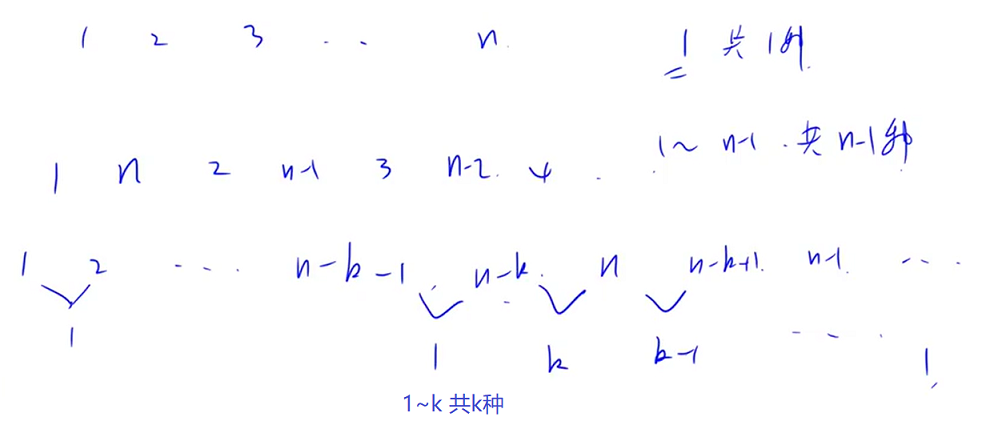 1 2 3 ... n 1 共1种
1 n 2 n-1 3 n-2 4 ... 1~n-1 共n-1种
1 2 ... n-k-1 n-k n n-k+1 n-1 ...
1 1 k k-1 ... 1
1~k 共k种